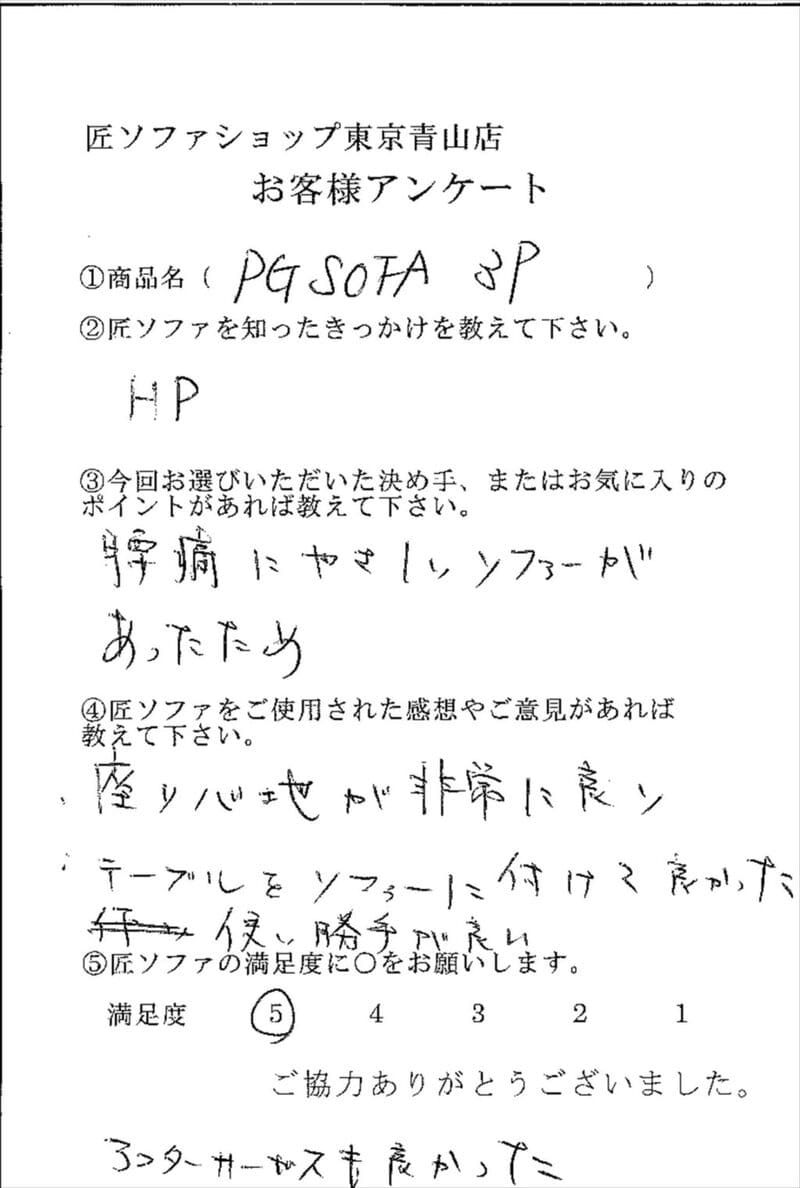 匠ソファショップ東京青山店
お客様アンケート
①商品名( PG SOFA 3P )
②匠ソファを知ったきっかけを教えて下さい。
HP
③今回お選びいただいた決め手、またはお気に入りの
ポイントがあれば教えて下さい。
腰痛にやさしいソファーが
あったため
④匠ソファをご使用された感想やご意見があれば
教えて下さい。
・座り心地が非常に良い
・テーブルをソファーに付けて良かった
使い勝手が良い
⑤匠ソファの満足度に○をお願いします。
満足度 5 4 3 2 1
ご協力ありがとうございました。
アフターサービスも良かった